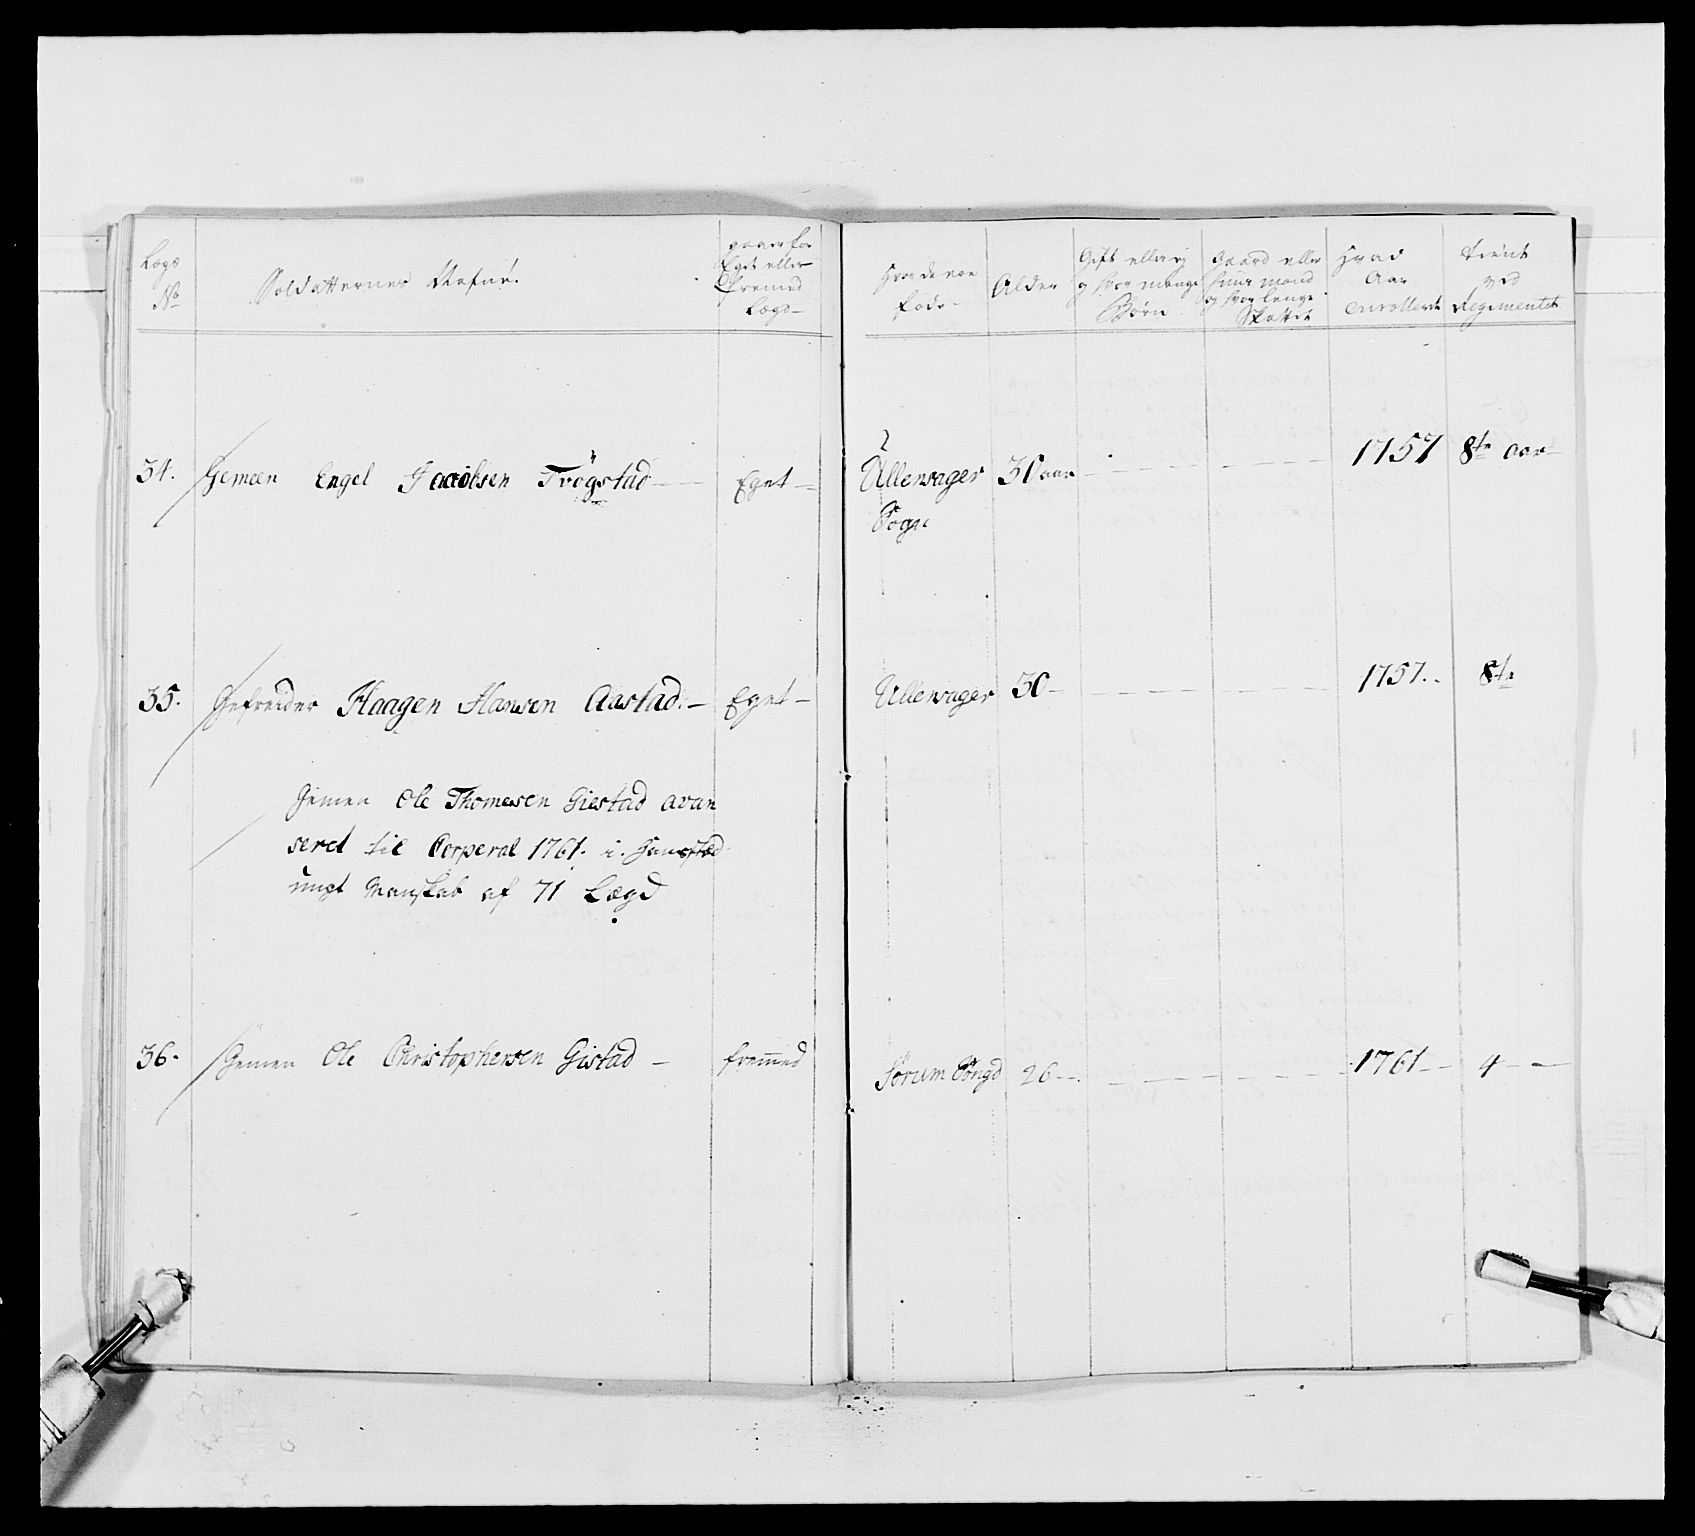 Lægs
No
Soldatternes Nafne.
gaaer for
Eget eller
fremed
Lægd
Hvor de ere
føde
Alder
Gift eller ej
og hvor mange
Børn
Gaard eller
Huus mand
og hvor lenge
Skattet
Hvad
Aar
Enrollerde
Tient
ved
Regimentet
34. Gemeen Engel Jacobsen Trøgstad — Eget — Ullensager 30 aar 1757 8te aar
Sogn
35. Gefreider Haagen Hansen Aastad. — Eget — Ullensager 30 1757. 8te
Gemen Ole Thomesen Giestad avan
seret til Corperal 1761. i
ungt Manskab af 71 Lægd
36. Gemen Ole Christophersen Gistad — fremed Sørum Sogn 26 1761 4